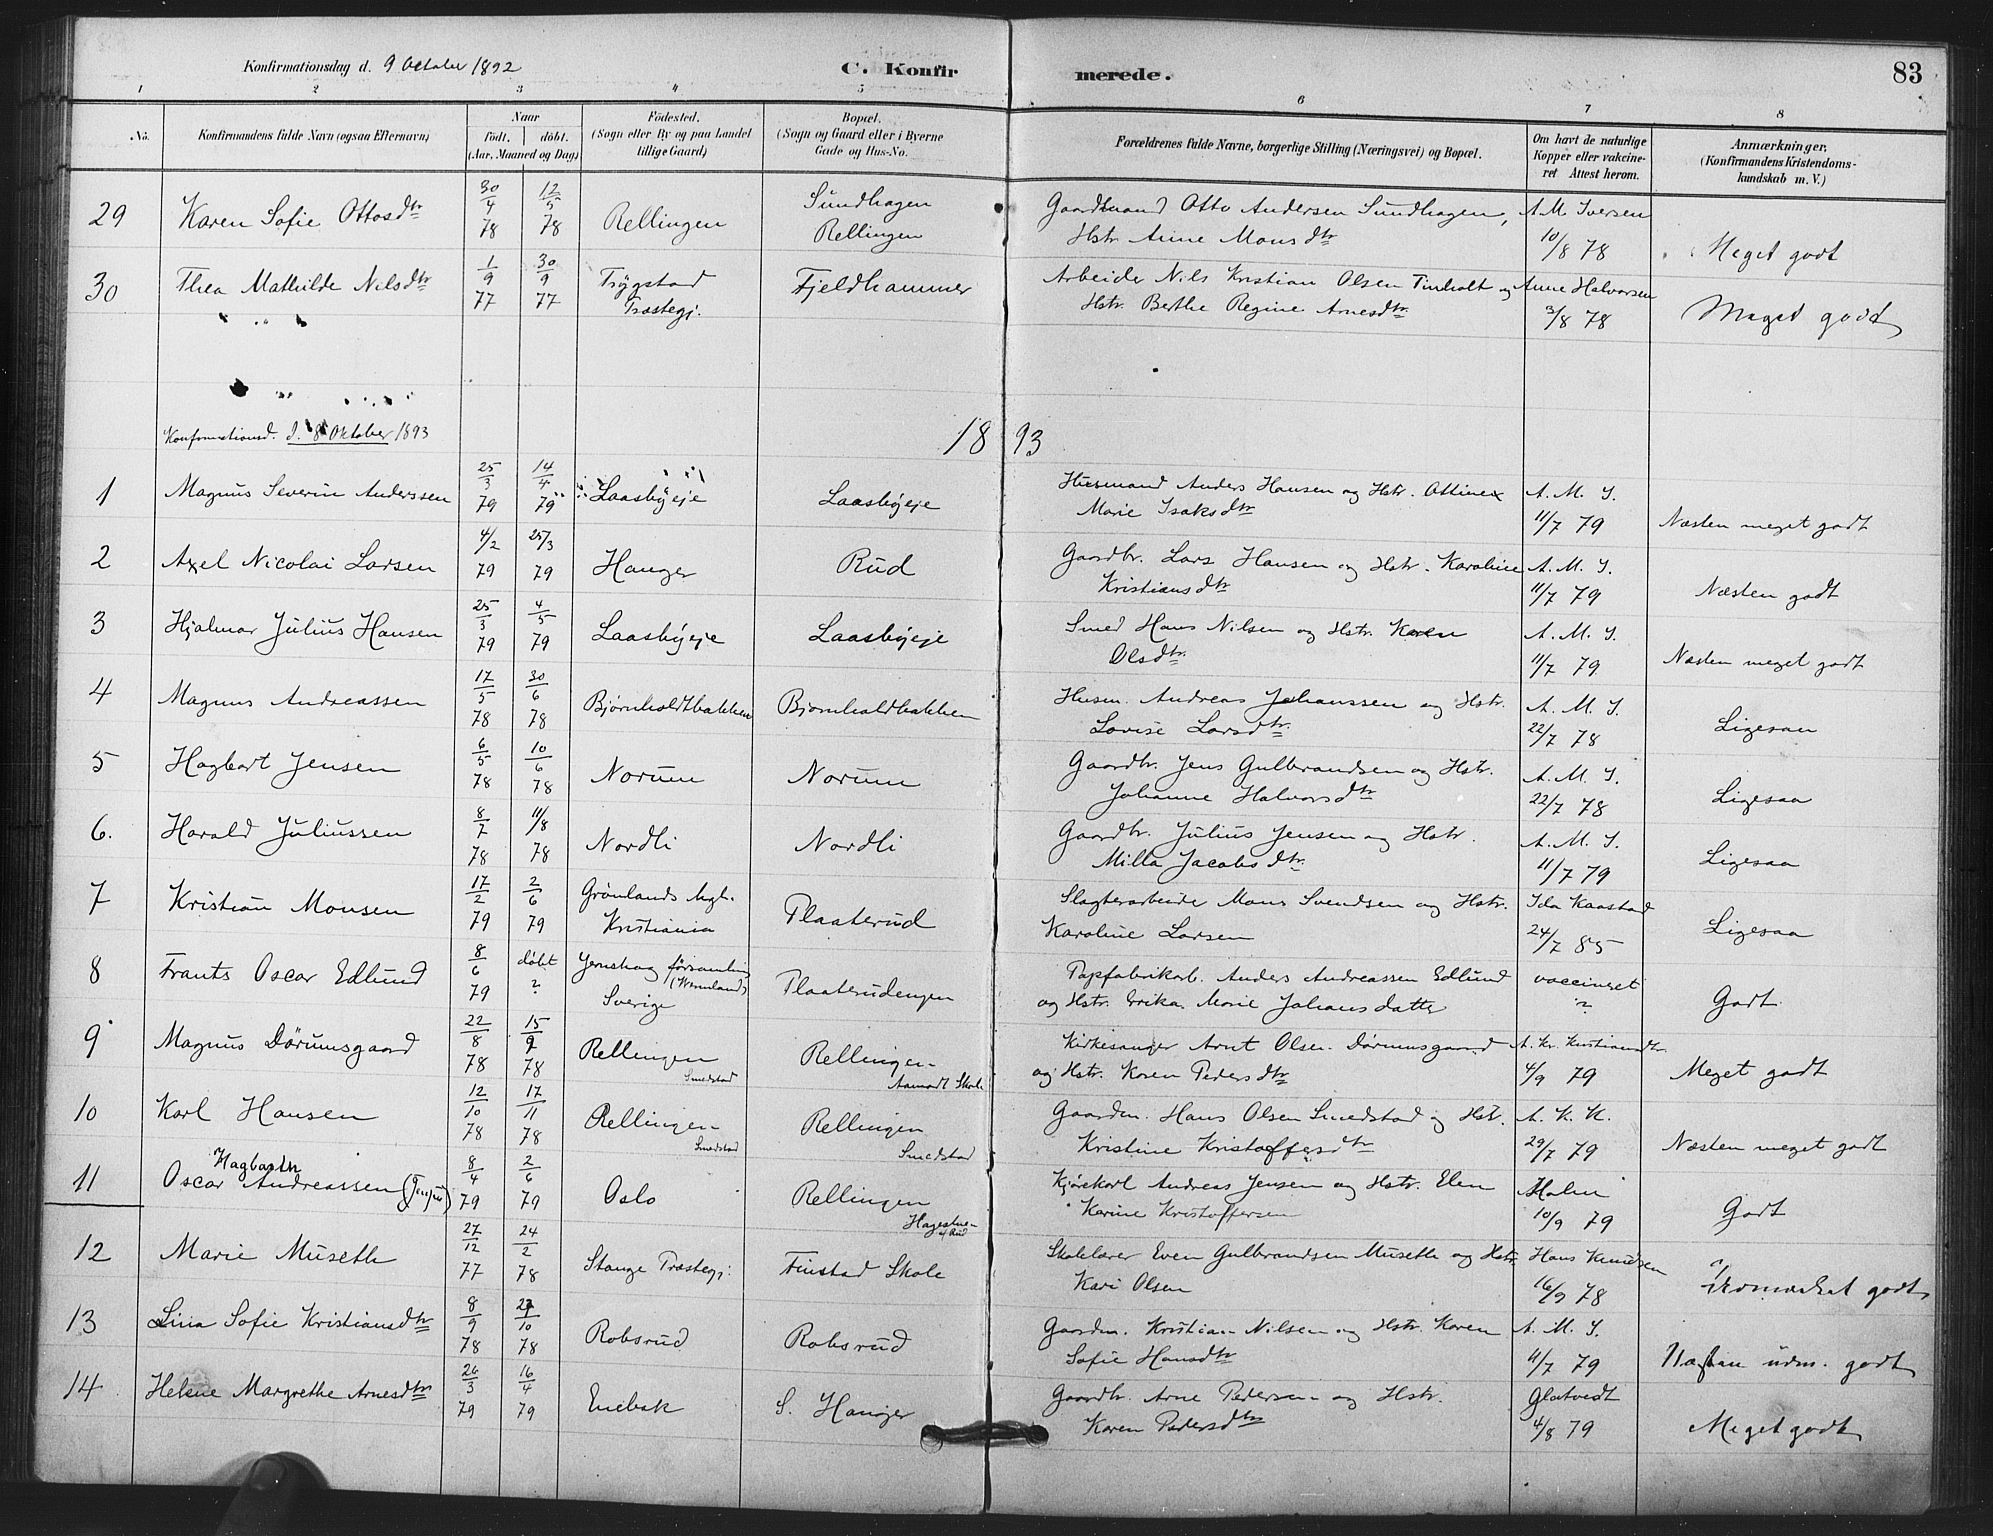 Konfirmationsdag d. 9 October 1892 C. Konfirmerede. 83
1 2 3 4 5 6 7 8
No. Konfirmandens fulde Navn (ogsaa Efternavn) Naar født. døbt. (Aar, Maaned og Dag) Fødested. (Sogn eller By og paa Landet tillige Gaard) Bopæl. (Sogn og Gaard eller i Byerne Gade og Hus-No. Forældrenes fulde Navne, borgerlige Stilling (Næringsvei) og Bopæl. Om havt de naturlige Kopper eller vakcineret Attest herom. Anmærkninger. (Konfirmandens Kristendomskundskab m. V.)
29 Karen Sofie Ottosdtr 30/4 78 12/5 78 Rellingen Sundhagen Rellingen Gaardmand Otto Andersen Sundhagen, Hstr. Anne Monsdtr A. M. Iversen 10/8 78 Meget godt
30 Thea Mathilde Nilsdtr 1/9 77 30/9 77 Trygstad Præstegj. Fjeldhammer Arbeider Nils Kristian Olsen Tinholt og Hstr. Berthe Regine Arnesdtr Anne Halvorsen 3/8 78 Meget godt
Konfirmationsd. d. 8 Oktober 1893 1893
1 Magnus Severin Anderssen 25/3 79 14/4 79 Laasbyeje Laasbyeje Husmand Anders Hansen og Hstr. Ottine Marie Isaksdtr A. M. I. 11/7 79 Næsten meget godt
2 Axel Nicolai Larsen 4/2 79 25/3 79 Hauger Rud Gaardbr. Lars Hansen og Hstr. Karoline Kristiansdtr A. M. I. 11/7 79 Næsten godt
3 Hjalmar Julius Hansen 25/3 79 4/5 79 Laasbyeje Laasbyeje Smed Hans Nilsen og Hstr. Karen Olsdtr A. M. I. 11/7 79 Næsten meget godt
4 Magnus Andreassen 17/5 78 30/6 78 Bjørnholdtbakken Bjørnholdbakken Husm. Andreas Johanssen og Hstr. Lovise Larsdtr A. M. I. 22/7 78 Ligesaa
5 Hagbart Jensen 6/5 78 10/6 78 Norum Norum Gaardbr. Jens Gulbrandsen og Hstr. Johanne Halvorsdtr A. M. I. 22/7 78 Ligesaa
6. Harald Juliussen 8/7 78 11/8 78 Nordli Nordli Gaardbr. Julius Jensen og Hstr. Milla Jacobsdtr A. M. I. 11/7 79 Ligesaa
7 Kristian Monsen 17/2 79 2/6 79 Grønlands Mgh. Kristiania Plaaterud Slagterarbeide Mons Svendsen og Hstr. Karoline Larsen Ida Kaastad 24/7 85 Ligesaa
8 Frants Oscar Edlund 8/6 79 døbt ? Jernskog församling (Wermland) Sverige Plaaterudengen Papfabrikarb. Anders Andreassen Edlund og Hstr. Erika Marie Johansdatter vaccineret ? Godt
9 Magnus Dørumsgaard 22/8 78 15/9 78 Rellingen Smedstad Rellingen Aamodt Skole Kirkesanger Arnt Olsen Dørumsgaard og Hstr. Karen Pedersdtr A. Kr. Kristiansdtr 4/9 79 Meget godt
10 Karl Hansen 12/10 78 17/11 78 Rellingen Smedstad Rellingen Smedstad Gaardm. Hans Olsen Smedstad og Hst. Kristine Kristoffersdtr A. K. K. 29/7 79 Næsten meget godt
11 Oscar Hagbarth Andreassen 8/4 79 2/6 79 Oslo Rellingen Kjørekarl Andreas Jensen og Hstr. Elen Karine Kristoffersen Holm 10/9 79 Godt
12 Marie Museth 27/12 77 24/2 78 Stange Præstegj. Finstad Skole Skolelærer Even Gulbrandsen Museth og Hstr. Kari Olsen Hans Knudsen 16/9 78 Udmærket godt
13 Lina Sofie Kristiansdtr 8/9 78 27/10 78 Robsrud Robsrud Gaardm. Kristian Nilsen og Hstr. Karen Sofie Hansdtr A. M. I. 11/7 79 Næsten udm. godt
14 Helene Margrethe Arnesdtr 26/3 79 16/4 79 Enebak S. Hauger Gaardbr. Arne Pedersen og Hstr. Karen Pedersdtr Glatvedt 4/8 79 Meget godt